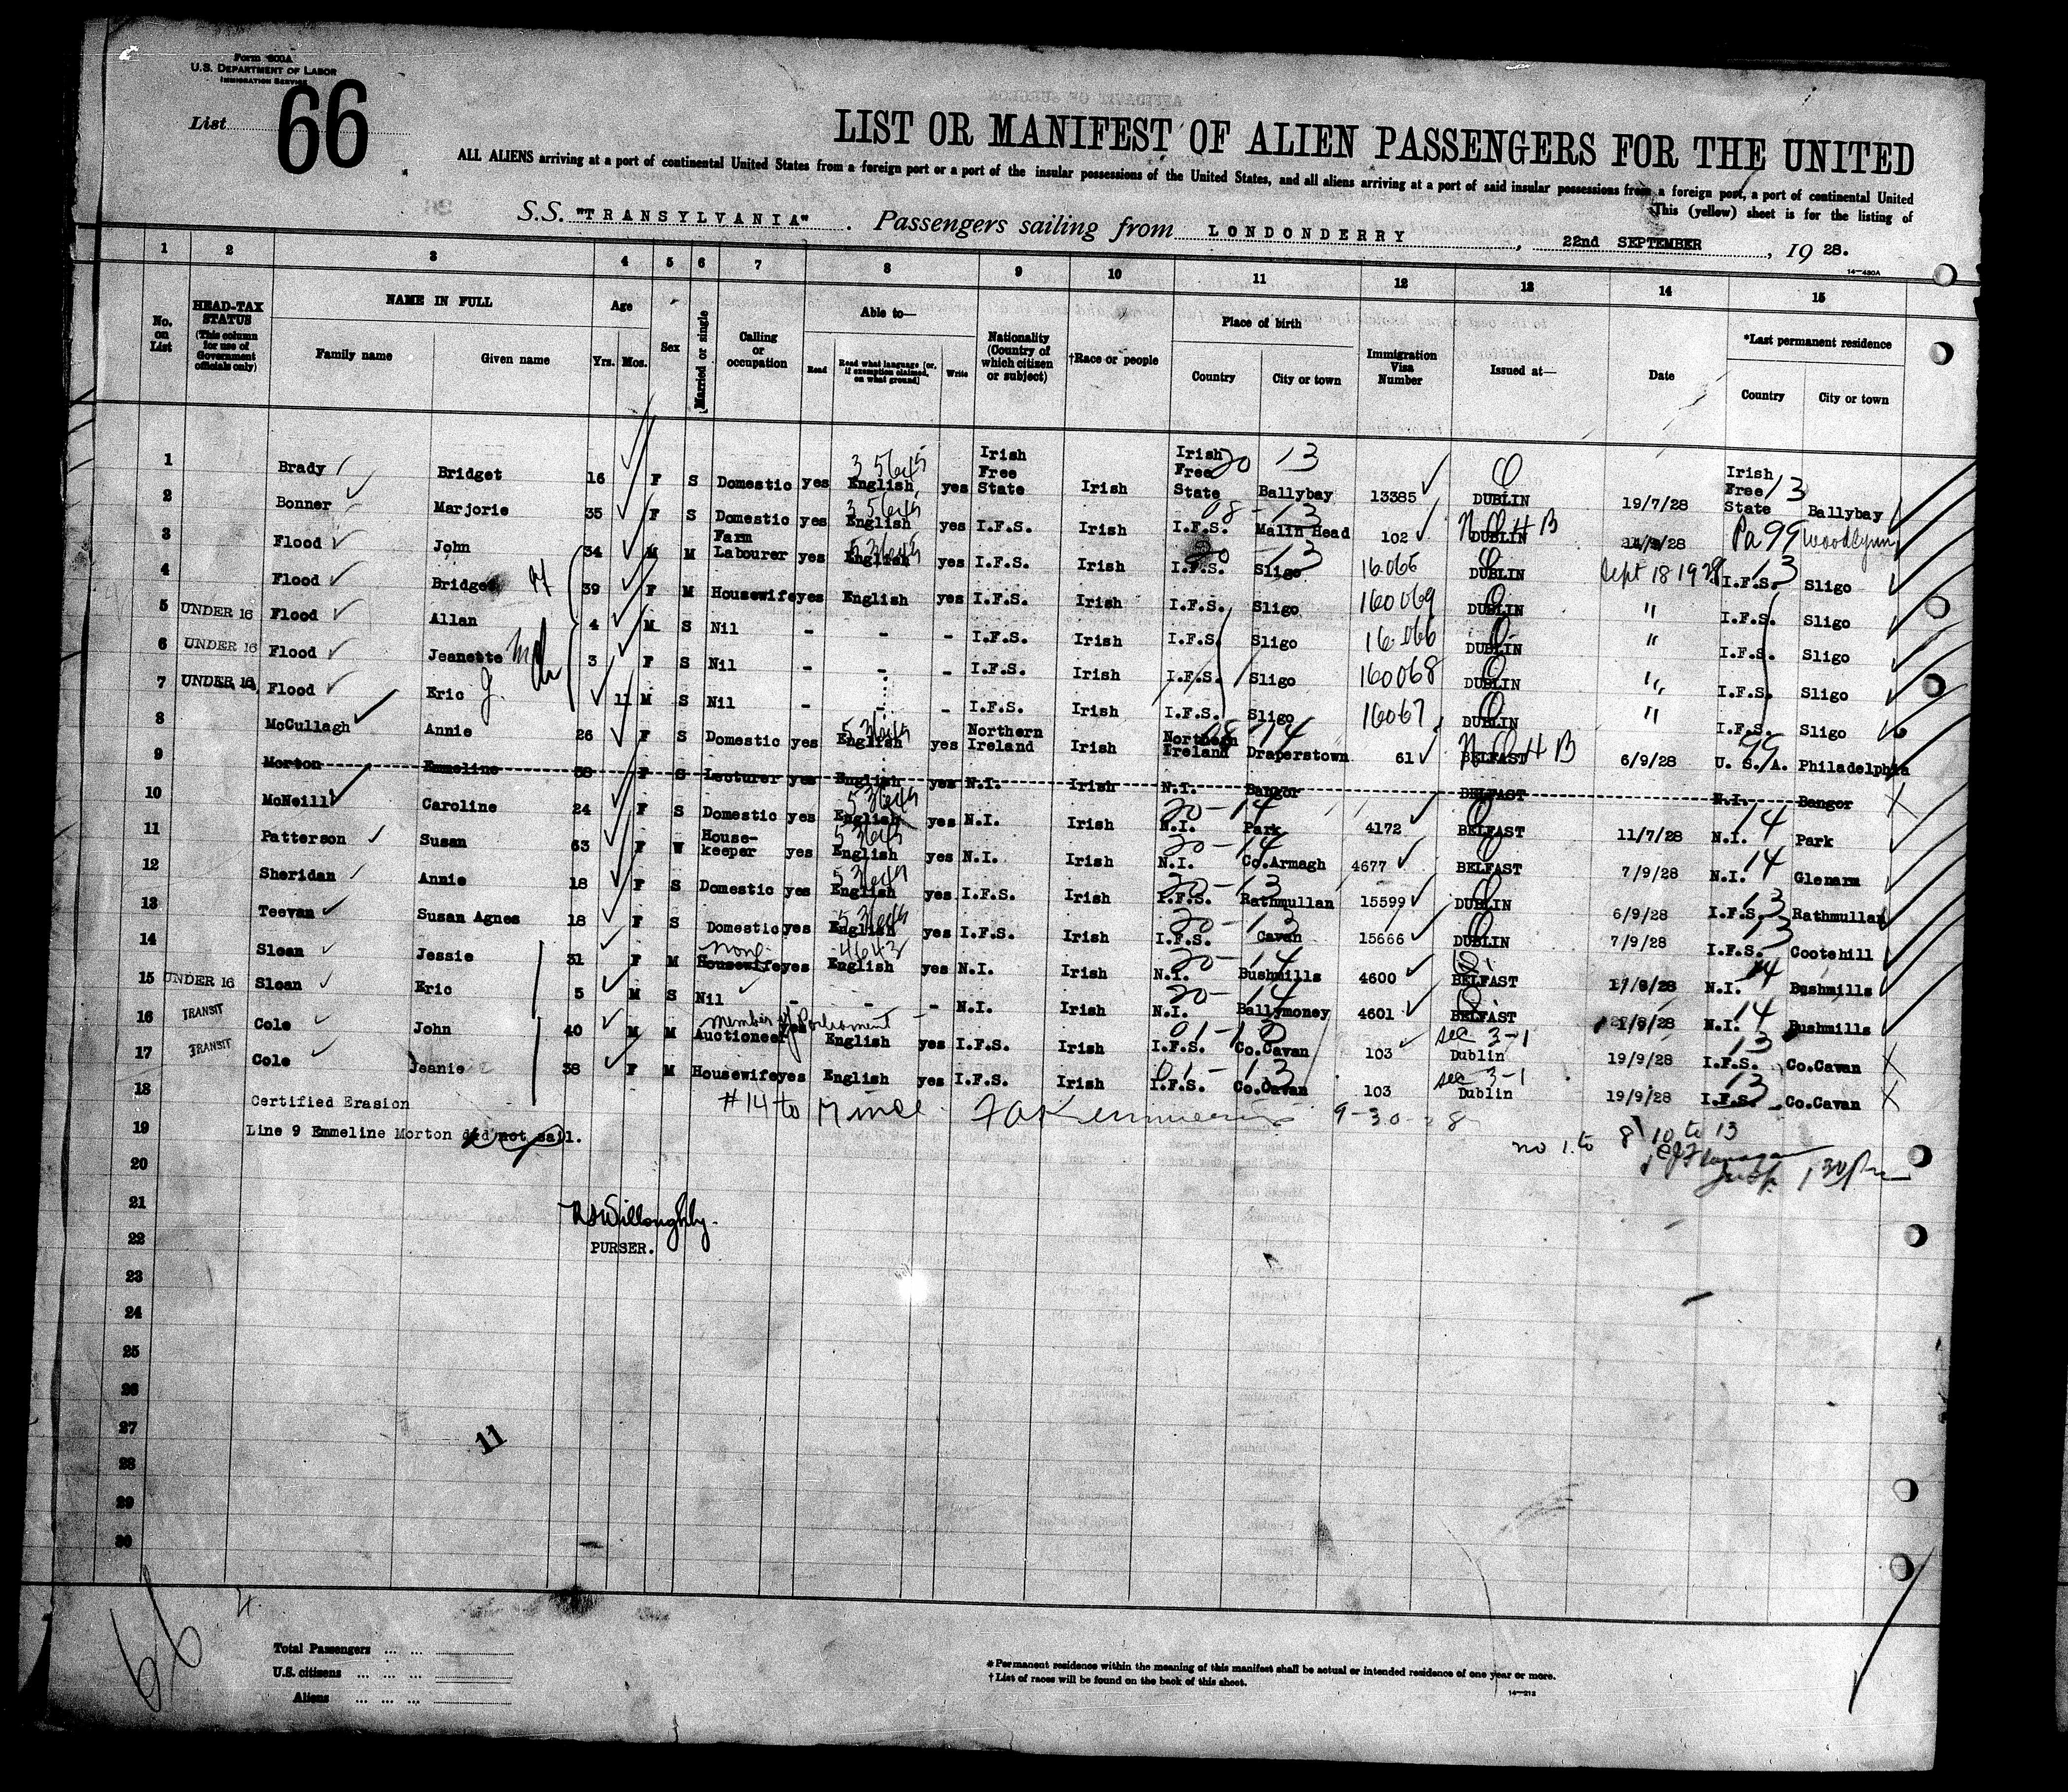 Form 600A
U.S. DEPARTMENT OF LABOR
IMMIGRATION SERVICE
List 66
LIST OR MANIFEST OF ALIEN PASSENGERS FOR THE UNITED
ALL ALIENS arriving at a port of continental United States from a foreign port or a port of the insular possessions of the United States, and all aliens arriving at a port of said insular possessions from a foreign port, a port of continental United
This (yellow) sheet is for the listing of
S.S. "TRANSYLVANIA". Passengers sailing from LONDONDERRY, 22nd SEPTEMBER, 19 28.
14-430A
1 2 3 4 5 6 7 8 9 10 11 12 13 14 15
No. on List
HEAD-TAX STATUS (This column for use of Government officials only)
NAME IN FULL
Family name Given name
Age
Yrs. Mos.
Sex
Married or single
Calling or occupation
Able to—
Read Read what language [or, if exemption claimed, on what ground] Write
Nationality (Country of which citizen or subject)
†Race or people
Place of birth
Country City or town
Immigration Visa Number
Issued at—
Date
*Last permanent residence
Country City or town
1 Brady Bridget 16 F S Domestic yes English yes Irish Free State Irish Irish Free State Ballybay 13385 DUBLIN 19/7/28 Irish Free State Ballybay
2 Bonner Marjorie 35 F S Domestic yes English yes I.F.S. Irish I.F.S. Malin Head 102 DUBLIN Pa 99 Woodlynn
3 Flood John 34 M M Farm Labourer yes English yes I.F.S. Irish I.F.S. Sligo 16065 DUBLIN Sept 18 1928 I.F.S. Sligo
4 Flood Bridget 39 F M Housewife yes English yes I.F.S. Irish I.F.S. Sligo 160069 DUBLIN " I.F.S. Sligo
5 UNDER 16 Flood Allan 4 M S Nil - - - I.F.S. Irish I.F.S. Sligo 16066 DUBLIN " I.F.S. Sligo
6 UNDER 16 Flood Jeanette 3 F S Nil - - - I.F.S. Irish I.F.S. Sligo 160068 DUBLIN " I.F.S. Sligo
7 UNDER 16 Flood Eric 11 M S Nil - - - I.F.S. Irish I.F.S. Sligo 16067 DUBLIN " I.F.S. Sligo
8 McCullagh Annie 26 F S Domestic yes English yes Northern Ireland Irish Northern Ireland Draperstown 61 BELFAST 6/9/28 U.S.A. Philadelphia
9 Morton Emmeline 38 F S Lecturer yes English yes N.I. Irish N.I. Bangor BELFAST N.I. Bangor
10 McNeill Caroline 24 F S Domestic yes English yes N.I. Irish N.I. Park 4172 BELFAST 11/7/28 N.I. Park
11 Patterson Susan 63 F W House-keeper yes English yes N.I. Irish N.I. Co.Armagh 4677 BELFAST 7/9/28 N.I. Glenarm
12 Sheridan Annie 18 F S Domestic yes English yes I.F.S. Irish I.F.S. Rathmullan 15599 DUBLIN 6/9/28 I.F.S. Rathmullan
13 Teevan Susan Agnes 18 F S Domestic yes English yes I.F.S. Irish I.F.S. Cavan 15666 DUBLIN 7/9/28 I.F.S. Cootehill
14 Sloan Jessie 31 F M none Housewife yes English yes N.I. Irish N.I. Bushmills 4600 BELFAST N.I. Bushmills
15 UNDER 16 Sloan Eric 5 M S Nil - - - N.I. Irish N.I. Ballymoney 4601 BELFAST N.I. Bushmills
16 TRANSIT Cole John 40 M M Member of Parliament Auctioneer yes English yes I.F.S. Irish I.F.S. Co.Cavan 103 sec 3-1 Dublin 19/9/28 I.F.S. Co.Cavan
17 TRANSIT Cole Jeanie 38 F M Housewife yes English yes I.F.S. Irish I.F.S. Co.Cavan 103 sec 3-1 Dublin 19/9/28 I.F.S. Co.Cavan
18 Certified Erasion #14 to 17 incl. 9-30-28
19 Line 9 Emmeline Morton did not sail.
no 1 to 8 10 to 13
20
21
22
PURSER.
23
24
25
26
27
11
28
29
30
66
Total Passengers
U.S. citizens
Aliens
*Permanent residence within the meaning of this manifest shall be actual or intended residence of one year or more.
†List of races will be found on the back of this sheet.
14-213